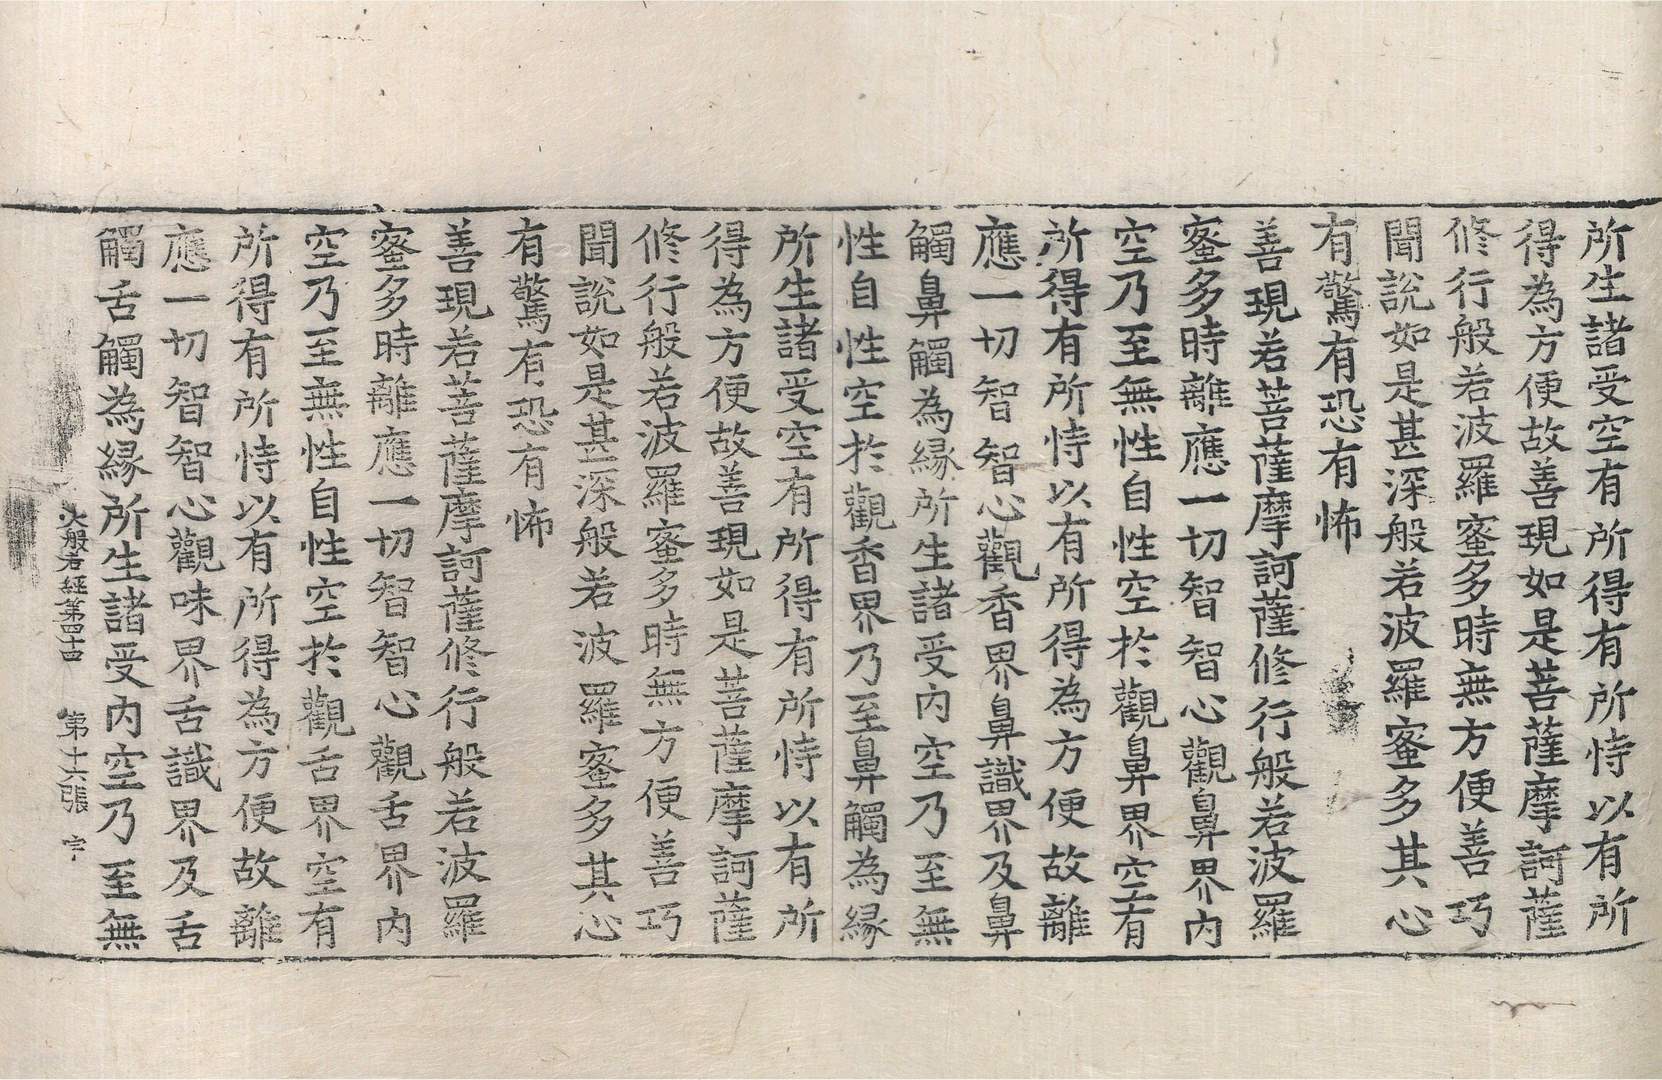 所生諸受空有所得有所恃以有所
得為方便故善現如是菩薩摩訶薩
修行般若波羅蜜多時無方便善巧
聞說如是甚深般若波羅蜜多其心
有驚有恐有怖
善現若菩薩摩訶薩修行般若波羅
蜜多時離應一切智智心觀鼻界內
空乃至無性自性空於觀鼻界空有
所得有所恃以有所得為方便故離
應一切智智心觀香界鼻識界及鼻
觸鼻觸為緣所生諸受內空乃至無
性自性空於觀香界乃至鼻觸為緣
所生諸受空有所得有所恃以有所
得為方便故善現如是菩薩摩訶薩
修行般若波羅蜜多時無方便善巧
聞說如是甚深般若波羅蜜多其心
有驚有恐有怖
善現若菩薩摩訶薩修行般若波羅
蜜多時離應一切智智心觀舌界內
空乃至無性自性空於觀舌界空有
所得有所恃以有所得為方便故離
應一切智智心觀味界舌識界及舌
觸舌觸為緣所生諸受內空乃至無
大般若經第四十四 第十六張